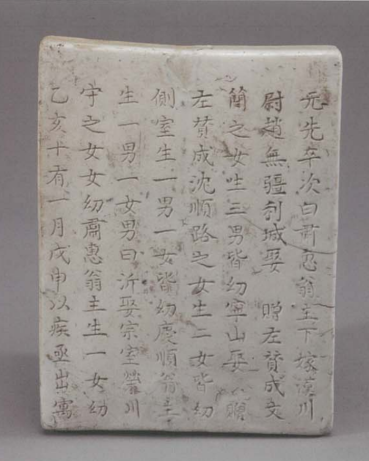 先卒次曰肅惠翁主下嫁漢川
尉趙無疆利城娶 贈左贊成文
簡之女生三男皆幼寧山娶
左贊成沈順路之女生二女皆幼
側室生一男一女皆幼慶順翁主
生一男一女男曰沂娶宗室營川
守之女女幼肅惠翁主生一女幼
乙亥十有一月戊申以疾亟出寓